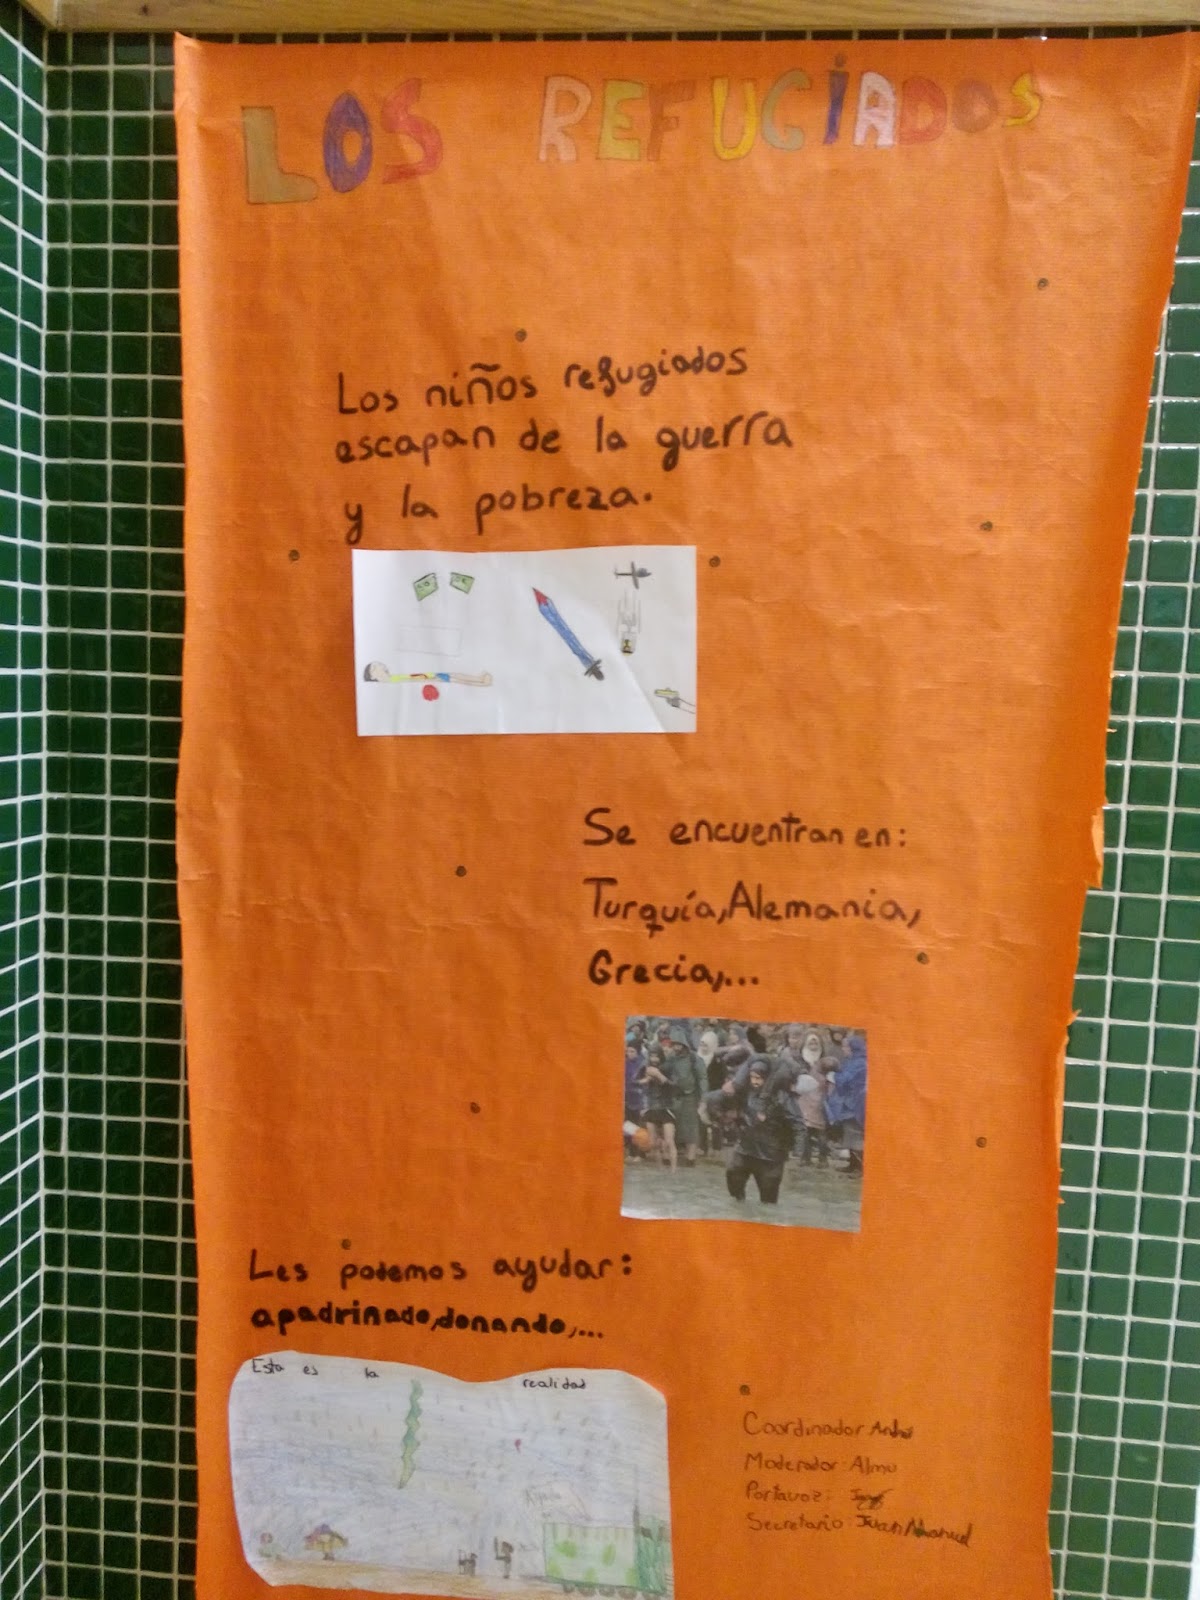 LOS REFUGIADOS
Los niños refugiados
escapan de la guerra
y la pobreza.
Se encuentran en:
Turquía, Alemania,
Grecia,...
Les podemos ayudar:
apadrinado, donando,...
Esta es la realidad
Coordinador
Moderador: Almu
Portavoz:
Secretario: Juan Manuel